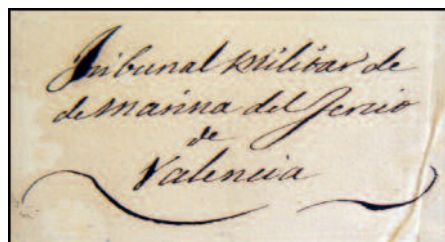 Tribunal Militar de
de Marina del Tercio
de
Valencia